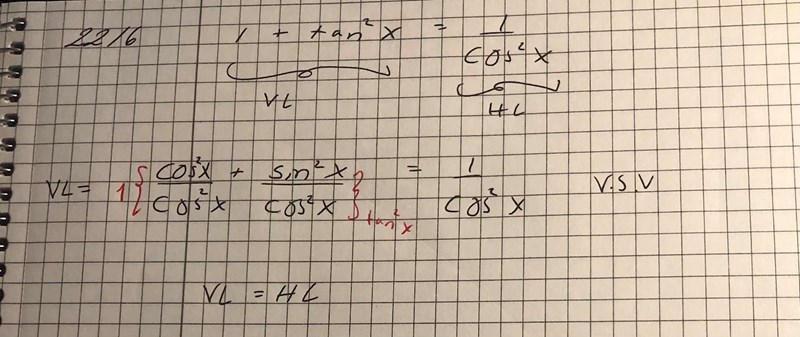 2216 1 + tan²x = 1/cos²x
VL HL
VL = 1 { cos²x/cos²x + sin²x/cos²x } tan²x = 1/cos²x V.S.V
VL = HL